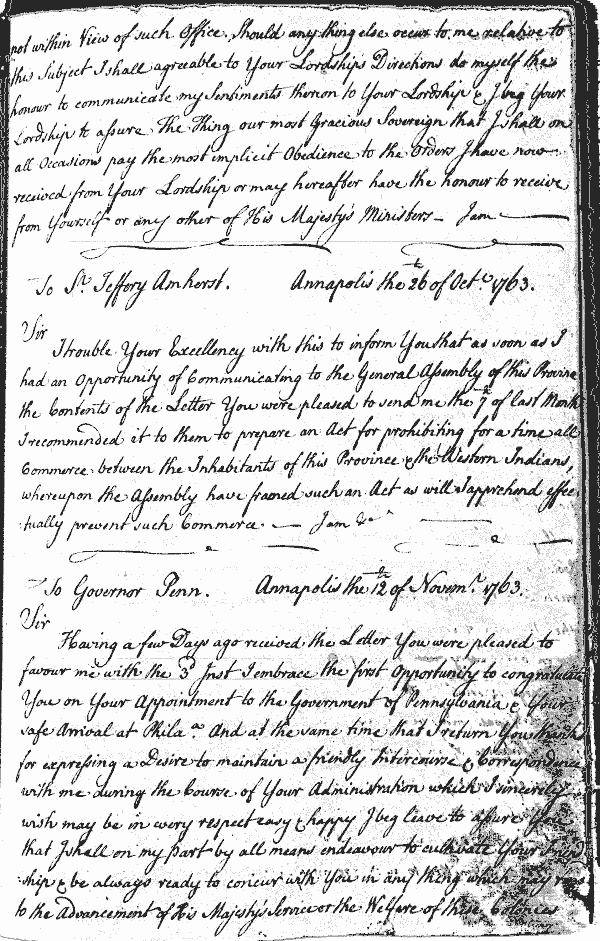 not within View of such Office. Should any thing else occur to me relative to
this Subject I shall agreeable to Your Lordships Directions do myself the
honour to communicate my Sentiments thereon to Your Lordship & I beg Your
Lordship to assure The King our most Gracious Sovereign that I shall on
all Occasions pay the most implicit Obedience to the Orders I have now
received from Your Lordship or may hereafter have the honour to receive
from Yourself or any other of His Majesty's Ministers — I am —
To Sr. Jeffory Amherst. Annapolis the 26th of Octr. 1763.
Sir
I trouble Your Excellency with this to inform You that as soon as I
had an Opportunity of Communicating to the General Assembly of this Province
the Contents of the Letter You were pleased to send me the 7th of last Month
I recommended it to them to prepare an Act for prohibiting for a time all
Commerce between the Inhabitants of this Province & the Western Indians,
whereupon the Assembly have framed such an Act as will I apprehend effec
tually prevent such Commerce. — I am &c
To Governor Penn. Annapolis the 12th of Novemr. 1763.
Sir
Having a few Days ago received the Letter You were pleased to
favour me with the 3d Inst I embrace the first Opportunity to congratulate
You on Your Appointment to the Government of Pennsylvania & Your
safe Arrival at Phila. And at the same time that I return You thanks
for expressing a Desire to maintain a friendly Intercourse & Correspondence
with me during the Course of Your Administration which I sincerely
wish may be in every respect easy & happy I beg leave to assure You
that I shall on my part by all means endeavour to cultivate Your Friend
ship & be always ready to concur with You in any thing which may
to the Advancement of His Majesty's Service or the Welfare of these Colonies